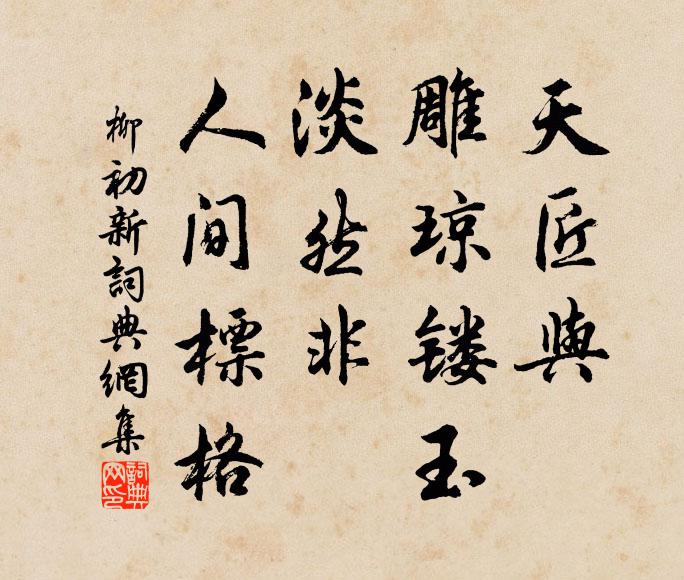 天匠與
雕琼镂玉
淡然非
人间標格
柳初新詞典網集
詞典网印